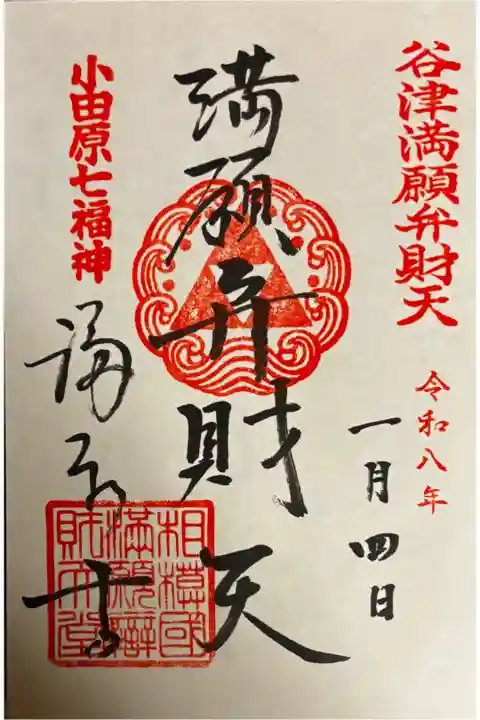 谷津満願弁財天
令和八年
一月四日
満願弁財天
小田原七福神
相模國
満願辯
財天堂